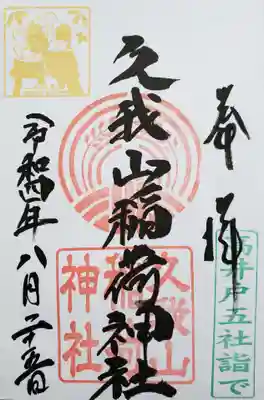 奉拝
高井戸五社詣で
久我山稲荷神社
久我山稲荷神社
令和四年八月二十五日